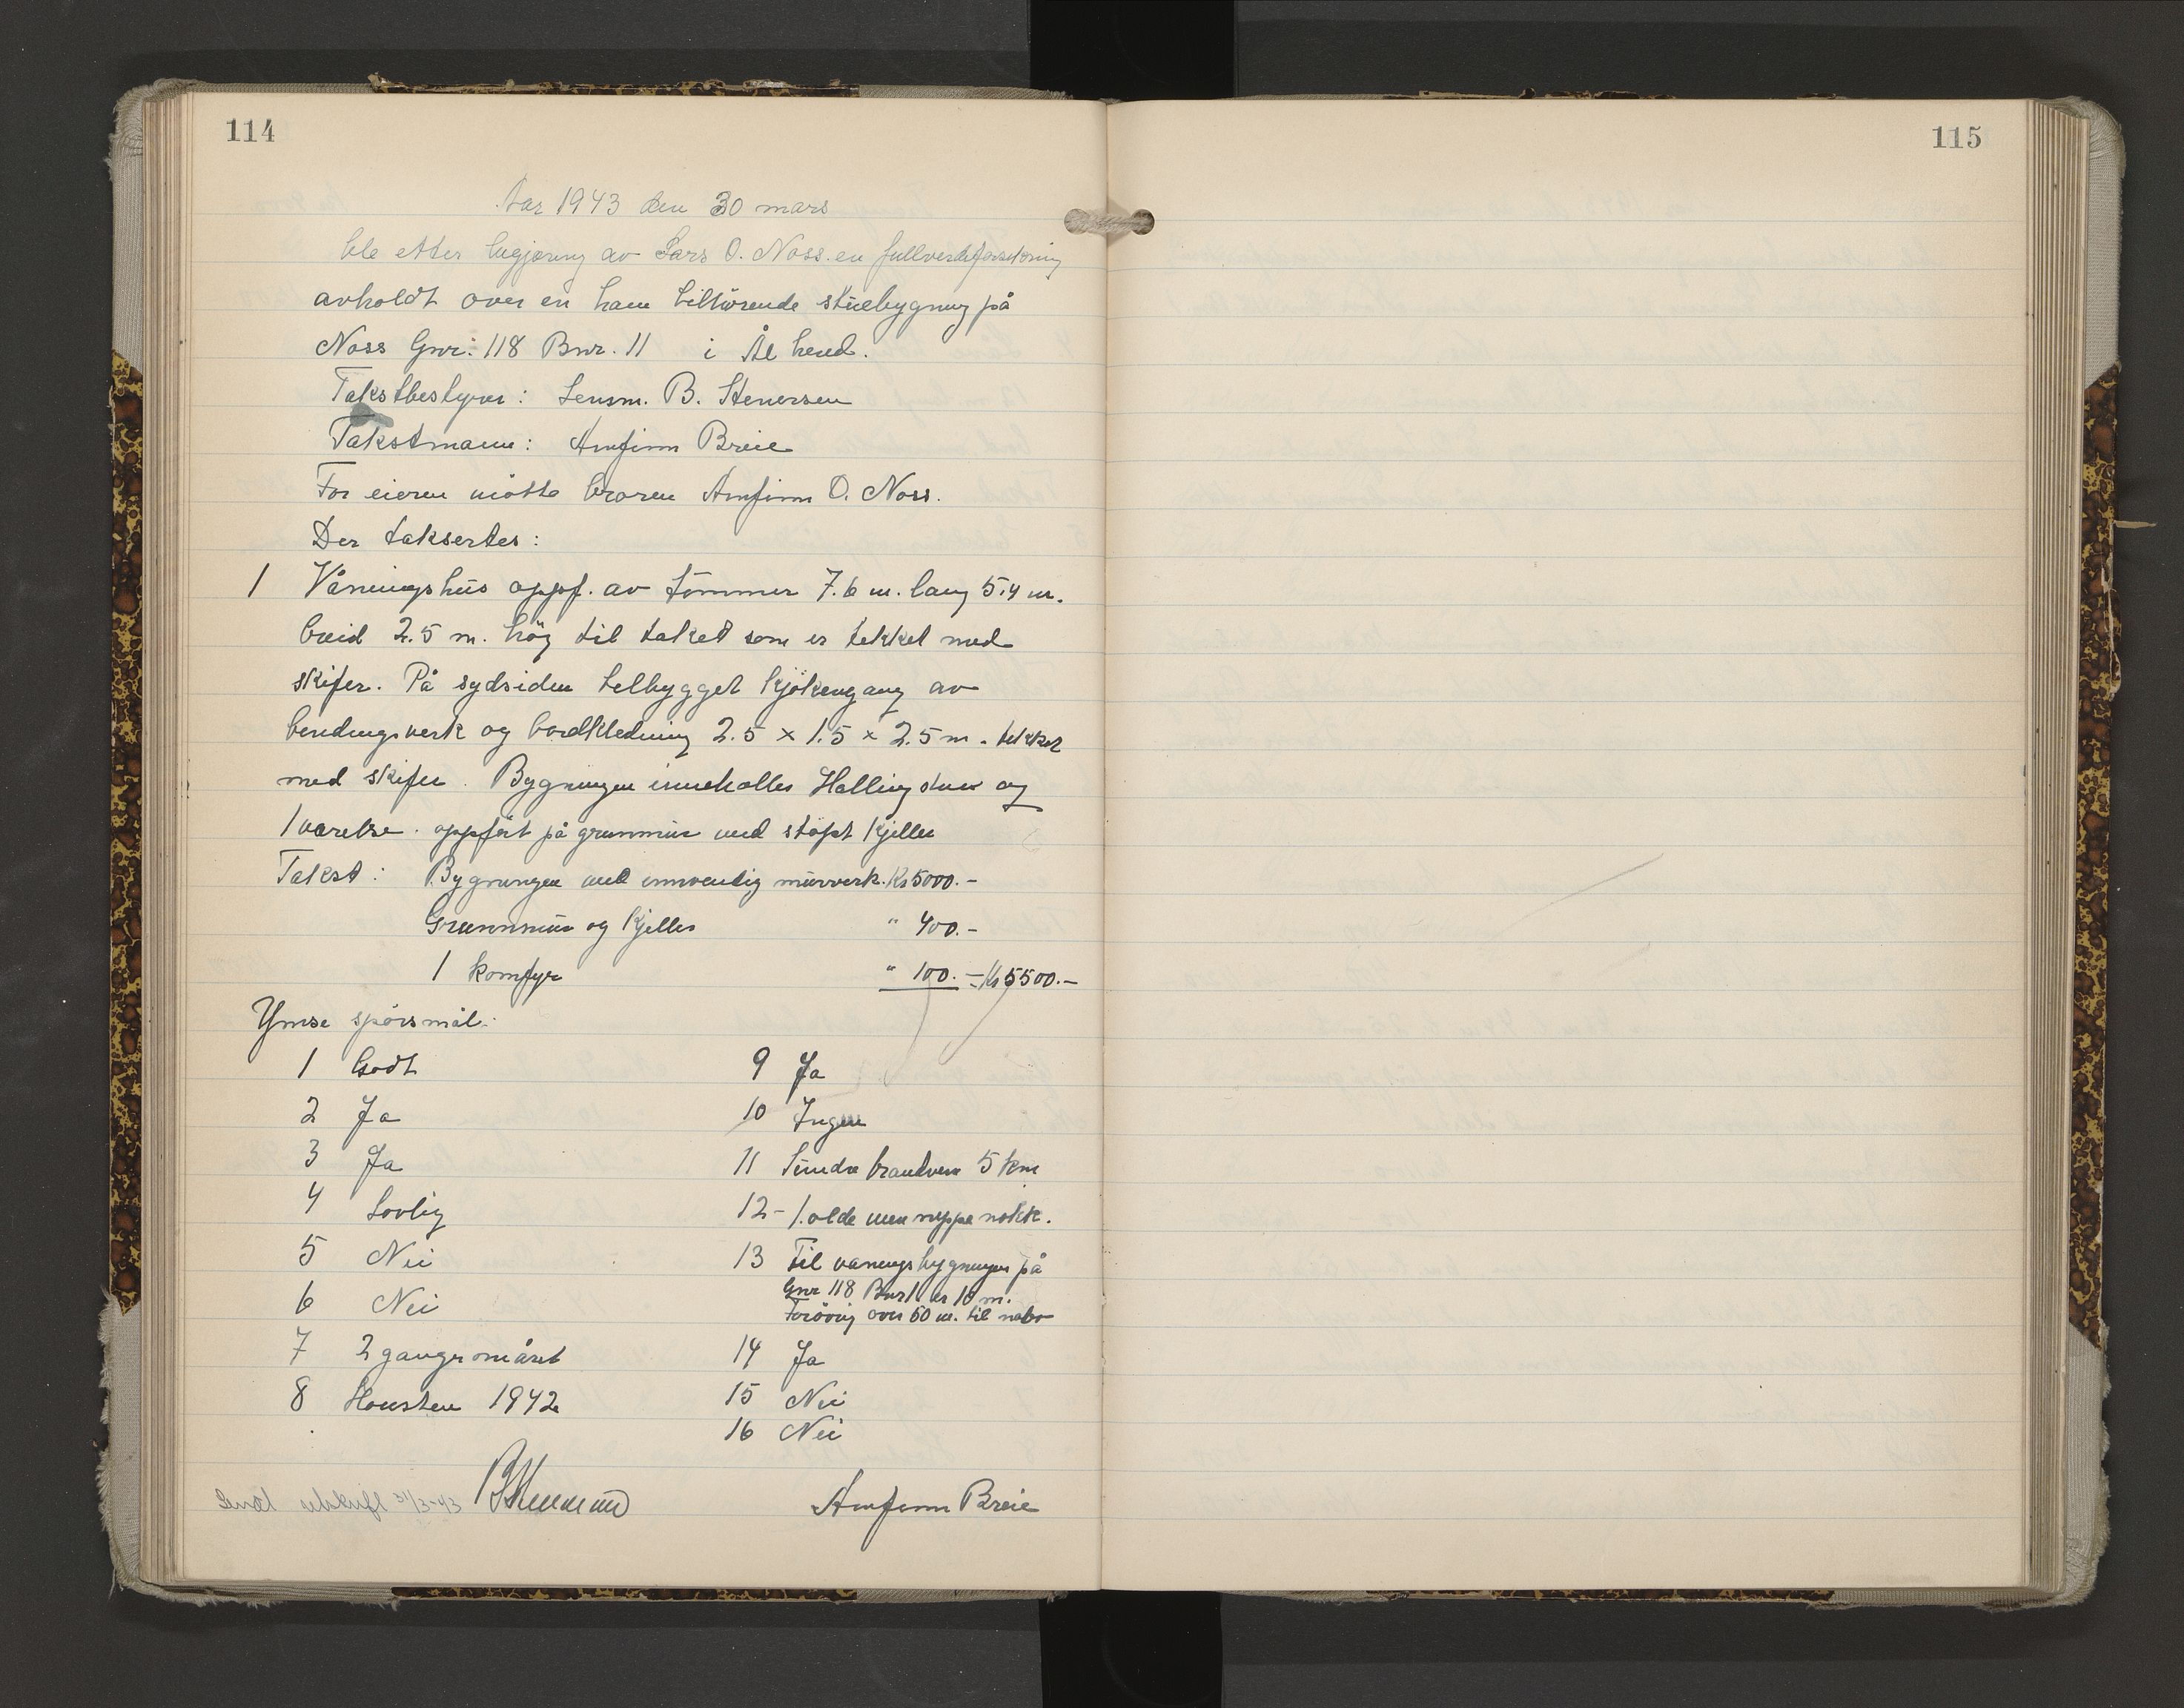 114
Aar 1943 den 30 mars
ble etter begjæring av Lars O. Noss. en fullverdiforsikring
avholdt over en ham tilhörende stuebygning på
Noss Gnr: 118 Bnr. 11 i Ål hered.
Takstbestyrer: Lensm. B. Stenersen
Takstmann: Arnfinn Breie
For eieren møtte broren Arnfinn O. Noss.
Der taksertes:
1 Våningshus oppf. av tömmer 7.6 m. lang 5.4 m.
breid 2.5 m. hög til taket som er tekket med
skifer. På sydsiden tilbygget kjökkengang av
bindingsverk og bordkledning 2.5 x 1.5 x 2.5 m. tekket
med skifer. Bygningen inneholder Hallingstue og
1 værelse. oppfört på grunnmur med stöpt kjeller
Takst: Bygningen med innvendig murverk. Kr 5000.-
Grunnmur og kjeller " 400.-
1 komfyr " 100.- = Kr 5500.-
Ymse spörsmål:
1 Godt
2 Ja
3 Ja
4 Lovlig
5 Nei
6 Nei
7 2 ganger om året
8 Hausten 1942
9 Ja
10 Ingen
11 Sundre brandvern 5 km
12 - 1. olde men neppe nokk.
13 Til vaningsbygningen på
Gnr 118 Bnr 1 er 10 m.
Forövrig over 60 m. til nabo
14 Ja
15 Nei
16 Nei
Sendt utskrift 31/3-43 BStenersen
Arnfinn Breie
115